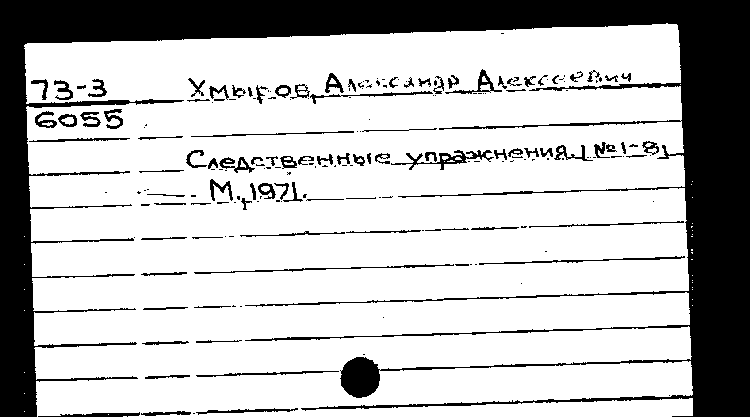 73-3 Хмыров, Александр Алексеевич
6055
Следственные упражнения. [№ 1-8]
М., 1971.